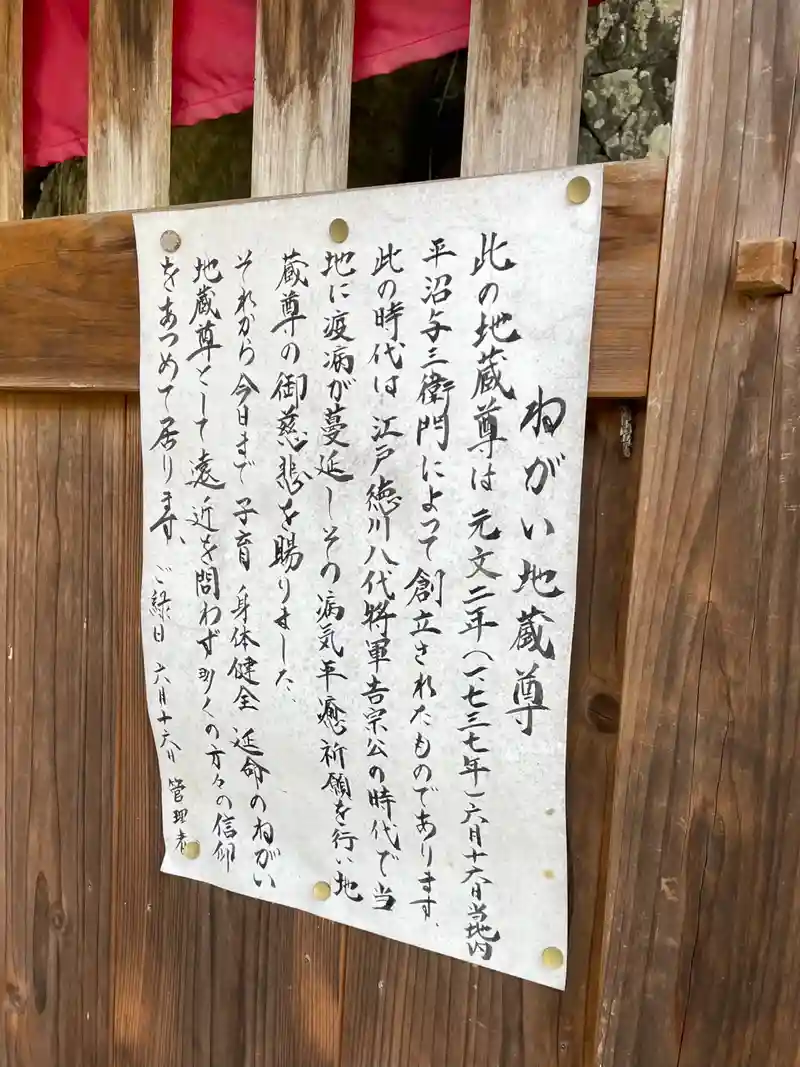 ねがい地蔵尊
此の地蔵尊は元文二年(一七三七年)六月十六日当地内
平沼与三衛門によって創立されたものであります、
此の時代は江戸徳川八代将軍吉宗公の時代で当
地に疫病が蔓延しその病気平癒祈願を行い地
蔵尊の御慈悲を賜りました、
それから今日まで子育 身体健全 延命のねがい
地蔵尊として遠近を問わず多くの方々の信仰
をあつめて居ります、ご縁日 六月十六日 管理者